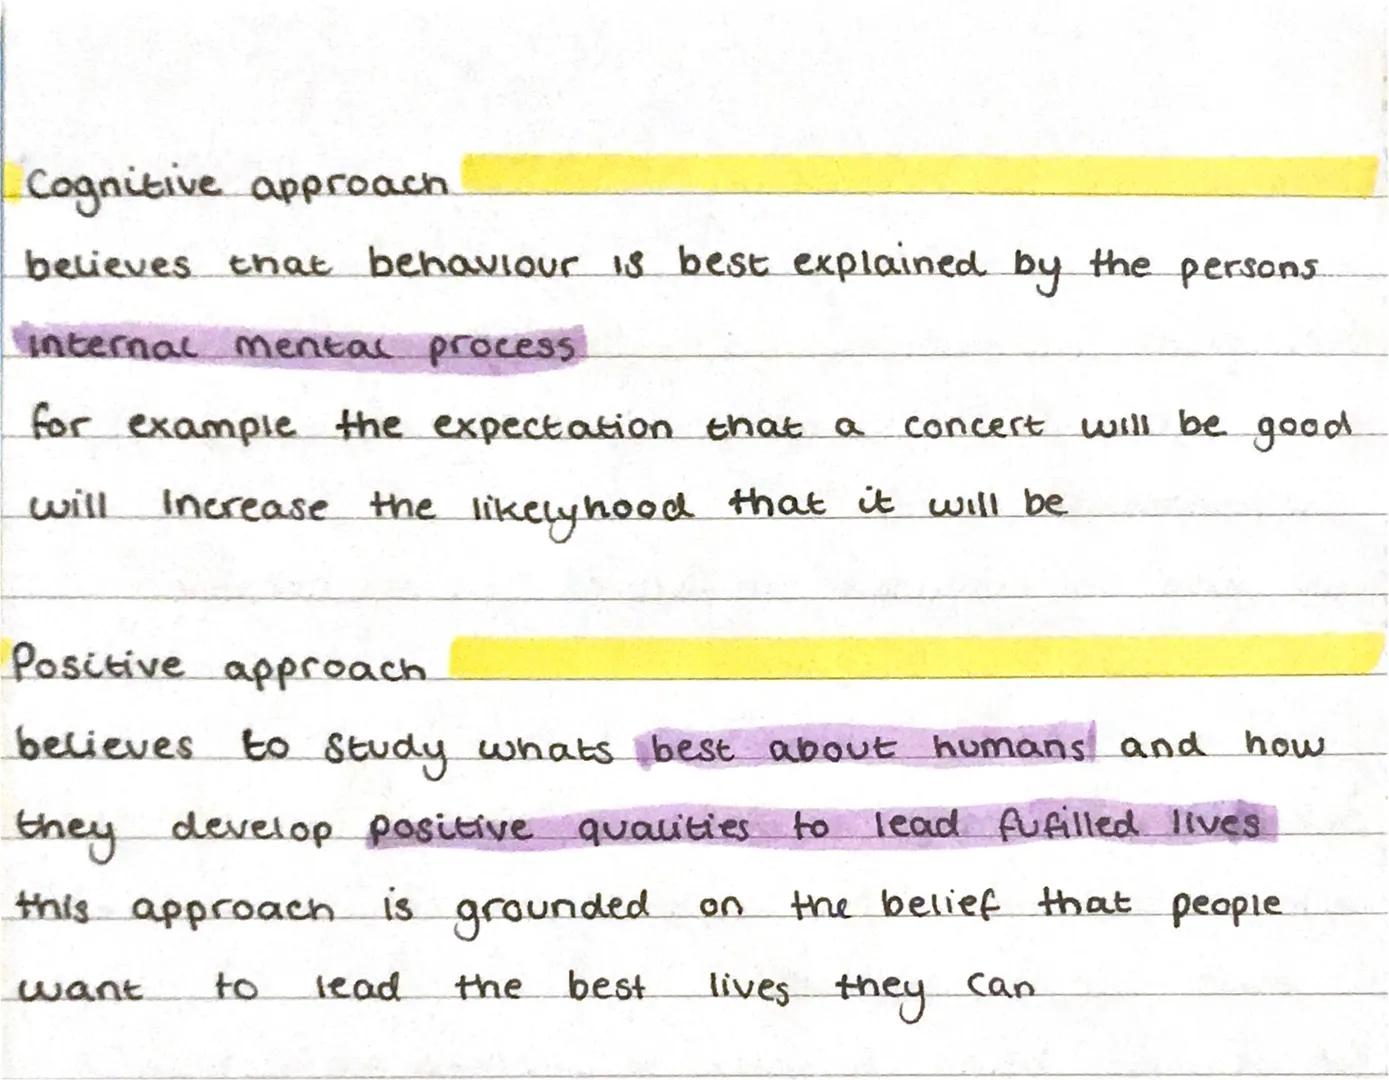 Cognitive approach
believes that behaviour is best explained by the persons
internal mental process
for example the expectation that a concert will be good
will increase the likelyhood that it will be
Positive approach
believes to study whats best about humans and how
they develop positive qualities to lead fufilled lives
this approach is grounded on the belief that people
want to lead the best lives they can